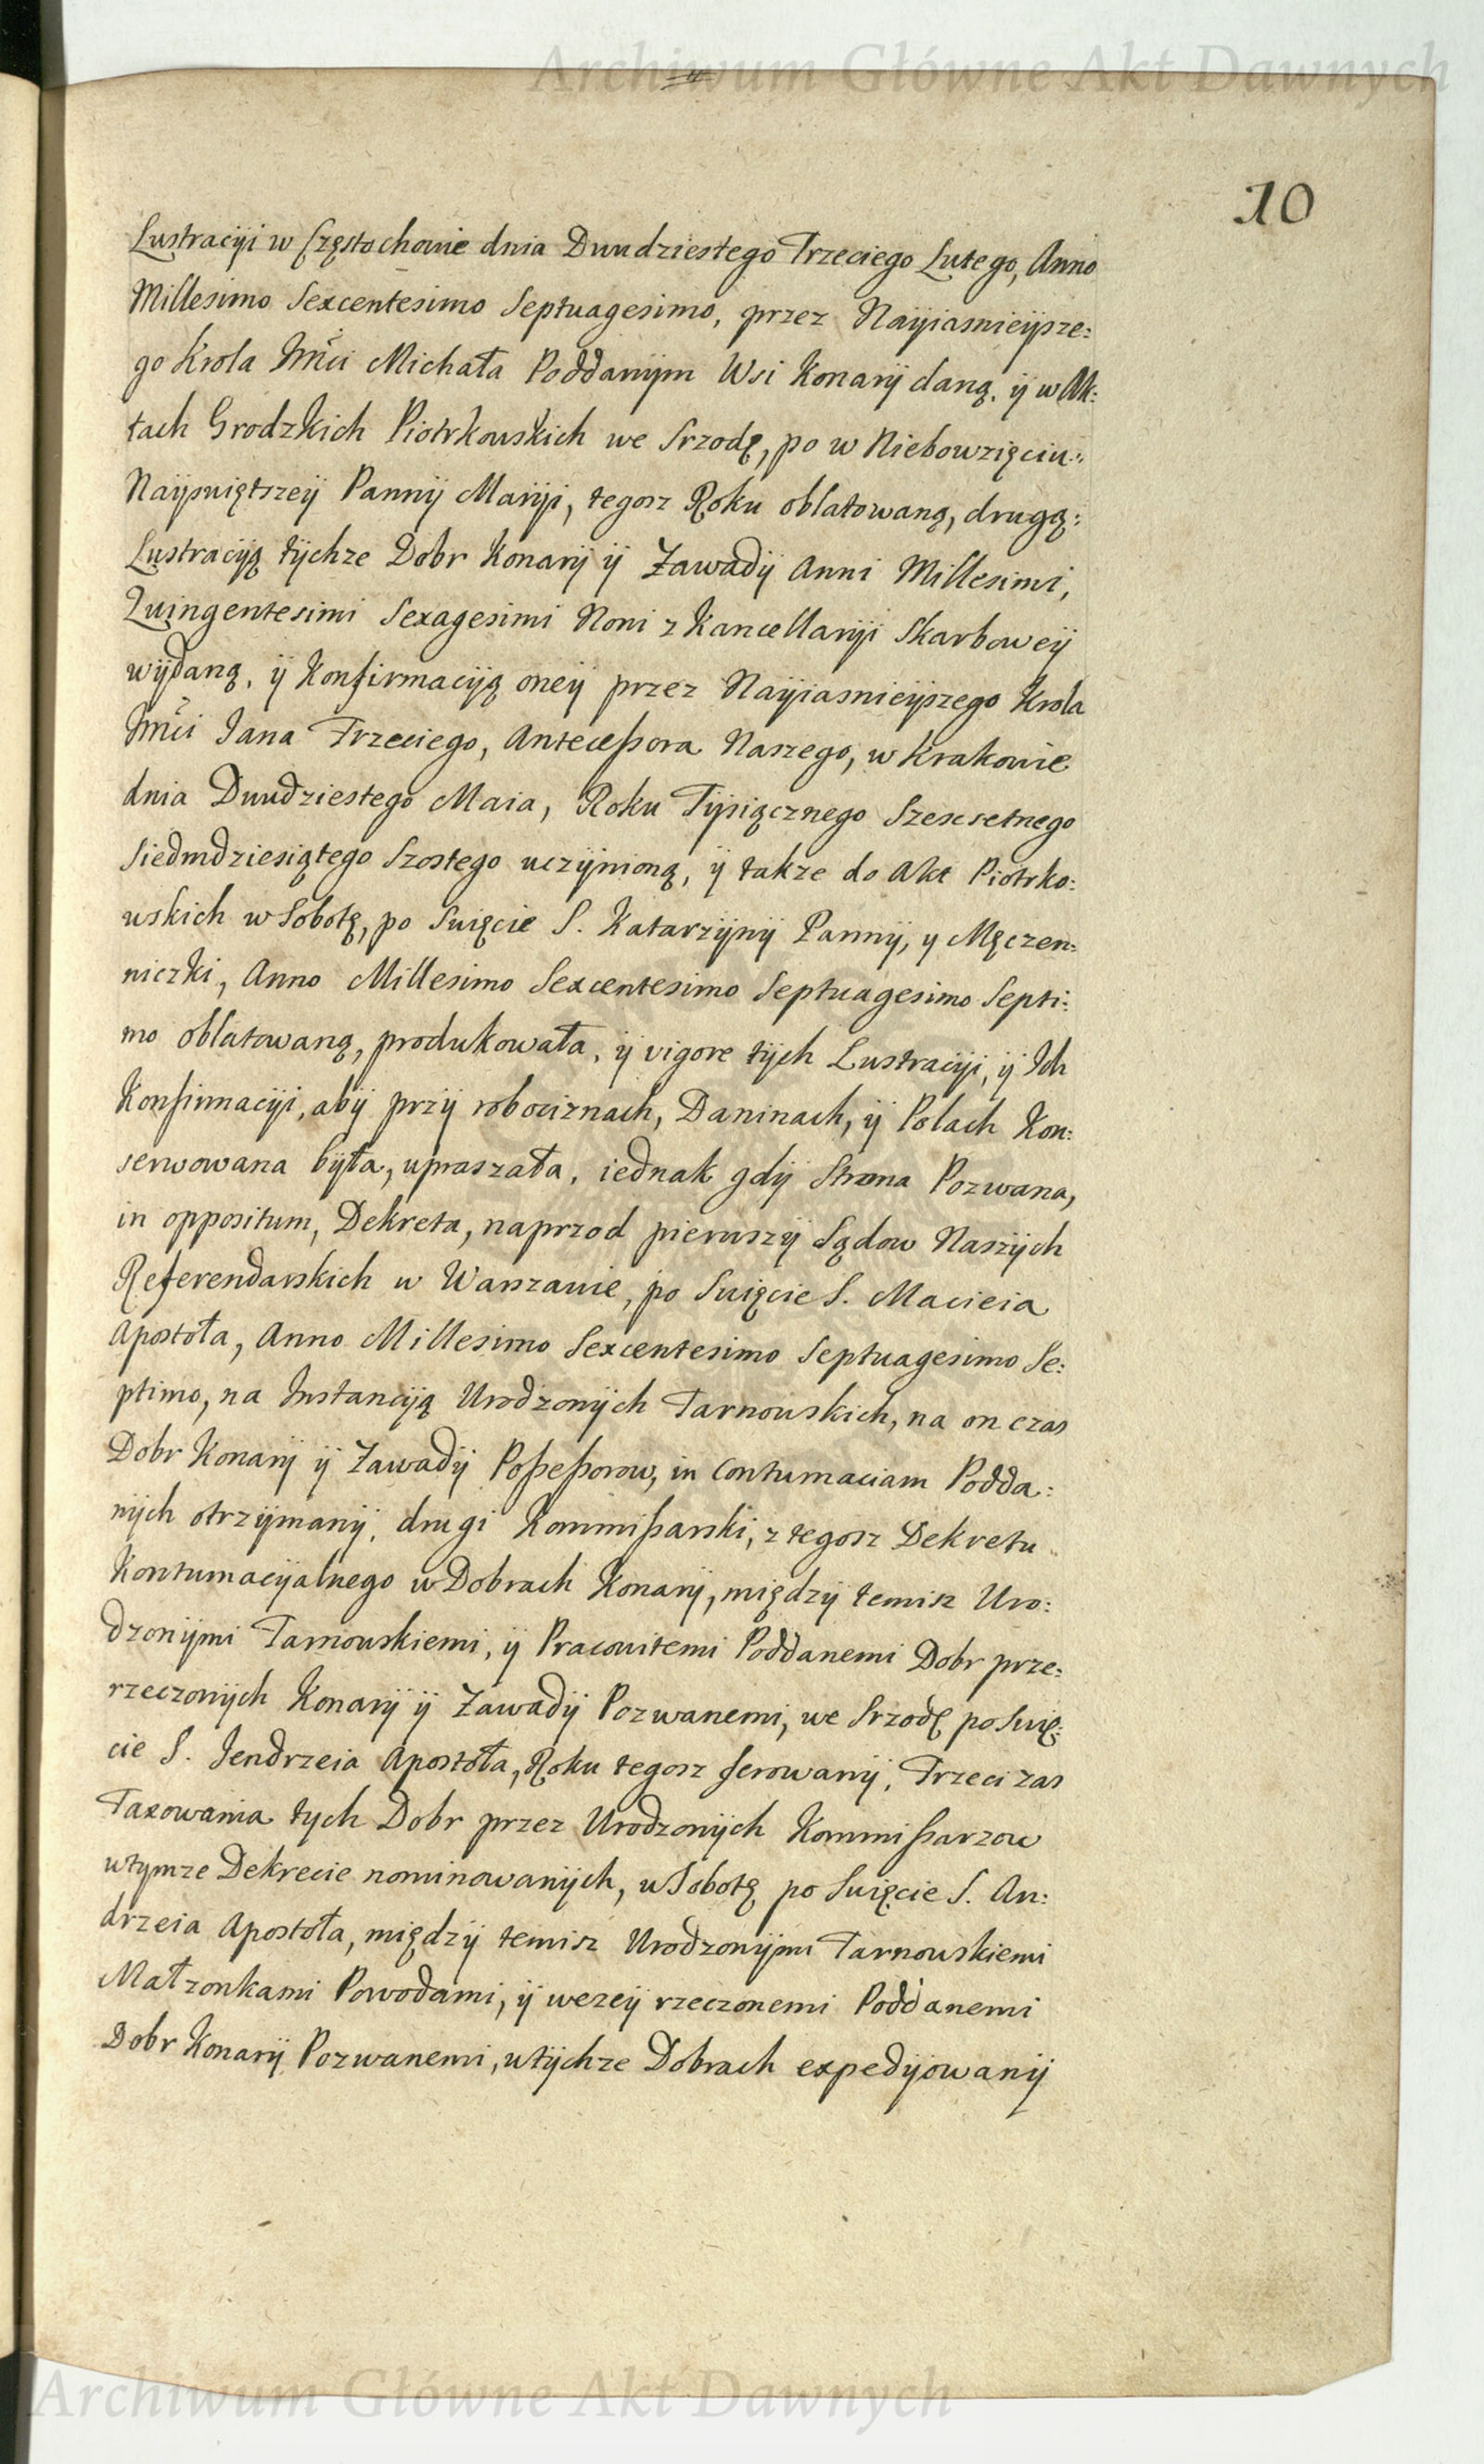 Archiwum Główne Akt Dawnych
10
Lustracyi w Częstochowie dnia Dwudziestego Trzeciego Lutego, Anno
Millesimo Sexcentesimo Septuagesimo, przez Nayiasnieysze:
go Krola Jmći Michała Poddanym Wsi Konary daną, y w Ak:
tach Grodzkich Piotrkowskich we Srzodę, po w Niebowzięciu
Nayswiętszey Panny Maryi, tegosz Roku oblatowaną, drugą:
Lustracyą tychze Dobr Konary y Zawady Anni Millesimi,
Quingentesimi Sexagesimi Noni z Kancellaryi Skarbowey
wydaną, y Konfirmacyą oney przez Nayiasnieyszego Krola
Jmći Jana Trzeciego, Antecessora Naszego, w Krakowie
dnia Dwudziestego Maia, Roku Tysiącznego Szescsetnego
Siedmdziesiątego Szostego uczynioną, y takze do Akt Piotrko:
wskich w Sobotę, po Swięcie S. Katarzyny Panny, y Męczen:
niczki, Anno Millesimo Sexcentesimo Septuagesimo Septi:
mo oblatowaną, produkowała, y vigore tych Lustracyi, y Ich
Konfirmacyi, aby przy robociznach, Daninach, y Polach Kon:
serwowana była, upraszała, iednak gdy Strona Pozwana,
in oppositum, Dekreta, naprzod pierwszy Sądow Naszych
Referendarskich w Warszawie, po Swięcie S. Macieia
Apostoła, Anno Millesimo Sexcentesimo Septuagesimo Se:
ptimo, na Instancyą Urodzonych Tarnowskich, na on czas
Dobr Konary y Zawady Possessorow, in Contumaciam Podda:
nych otrzymany, drugi Kommissarski, z tegosz Dekretu
Kontumacyalnego w Dobrach Konary, między temisz Uro:
dzonymi Tarnowskiemi, y Pracowitemi Poddanemi Dobr prze:
rzeczonych Konary y Zawady Pozwanemi, we Srzodę po Swię:
cie S. Jendrzeia Apostoła, Roku tegosz ferowany, Trzeci zas
Taxowania tych Dobr przez Urodzonych Kommissarzow
wtymze Dekrecie nominowanych, w Sobotę po Swięcie S. An:
drzeia Apostoła, między temisz Urodzonymi Tarnowskiemi
Małzonkami Powodami, y wezey rzeczonemi Poddanemi
Dobr Konary Pozwanemi, wtychze Dobrach expedyowany
Archiwum Główne Akt Dawnych